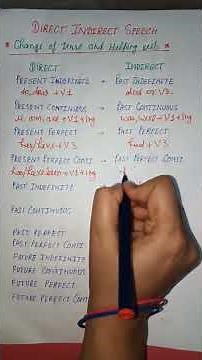 DIRECT INDIRECT SPEECH
* Change of Tense and Helping verb *
DIRECT INDIRECT
PRESENT INDEFINITE → PAST INDEFINITE
do, does + V1 did or V2
PRESENT CONTINUOUS → PAST CONTINUOUS
is, am, are + V1 + ing was, were + V1 + ing
PRESENT PERFECT → PAST PERFECT
has/have + V3 had + V3
PRESENT PERFECT CONTI → PAST PERFECT CONTI
has/have been + V1 + ing
PAST INDEFINITE
PAST CONTINUOUS
PAST PERFECT
PAST PERFECT CONTI
FUTURE INDEFINITE
FUTURE CONTINUOUS
FUTURE PERFECT
FUTURE PERFECT CONTI